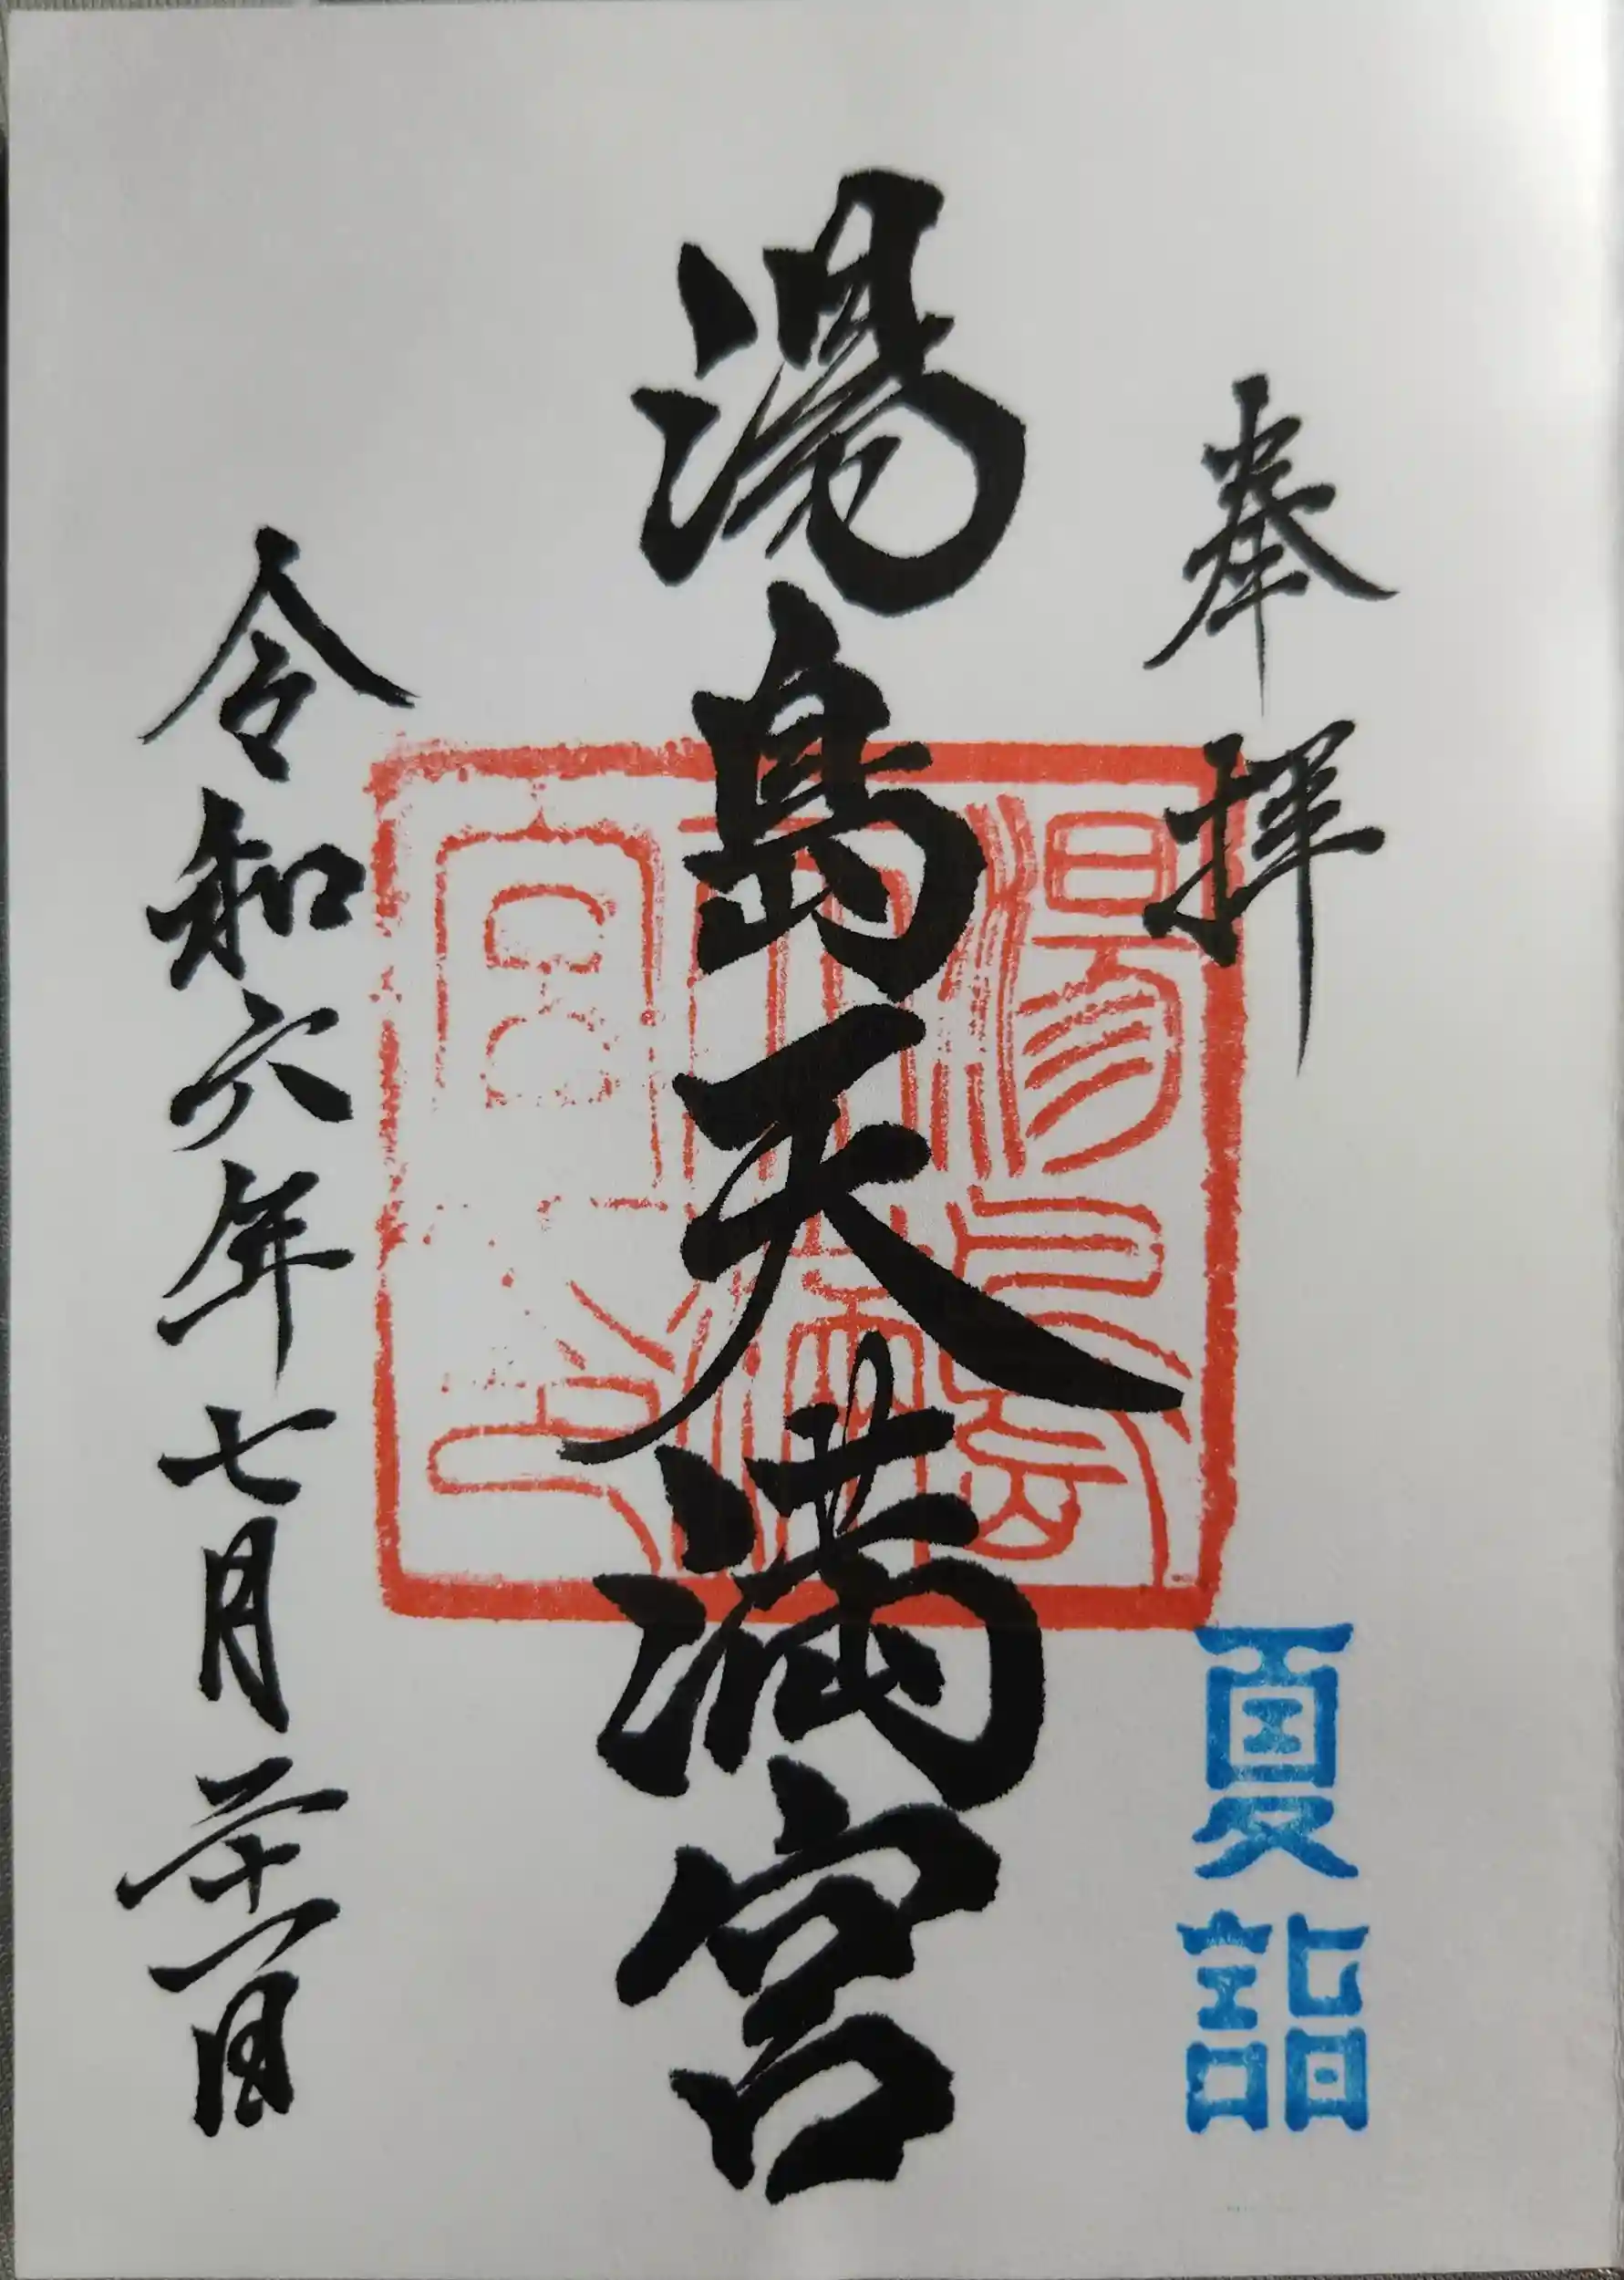 奉拝
夏詣
湯島天満宮
湯島天満宮之印
令和六年七月二十一日